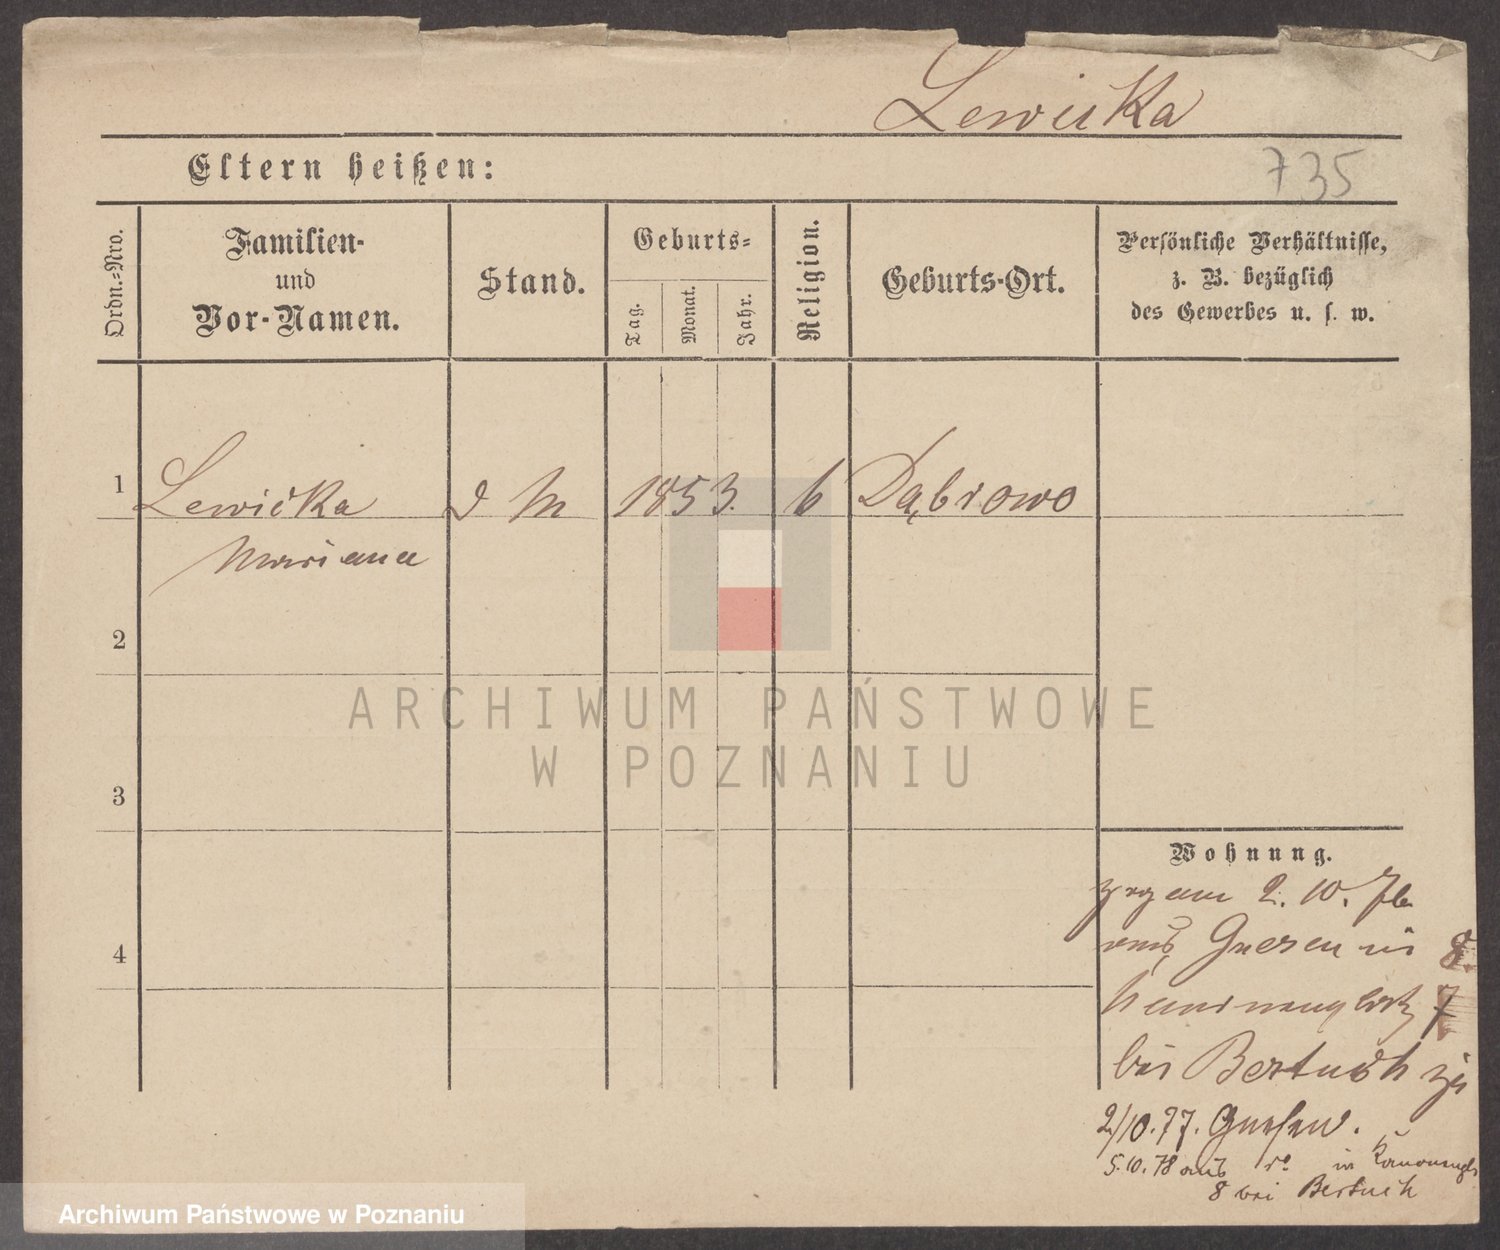 Lewicka
Eltern heißen:
735
Ordn.-Nro.
Familien-
und
Vor-Namen.
Stand.
Geburts-
Tag.
Monat.
Jahr.
Religion.
Geburts-Ort.
Persönliche Verhältnisse,
z. B. bezüglich
des Gewerbes u. s. w.
1 Lewicka 1853. Dąbrowo
Mariana
2
ARCHIWUM PAŃSTWOWE
W POZNANIU
3
Wohnung.
am 2. 10. 76
aus Gnesen in 8
4
7
bei Bertuch zu
2/10.77. Gnesen.
5.10.78 aus in
8 bei Bertuch
Archiwum Państwowe w Poznaniu